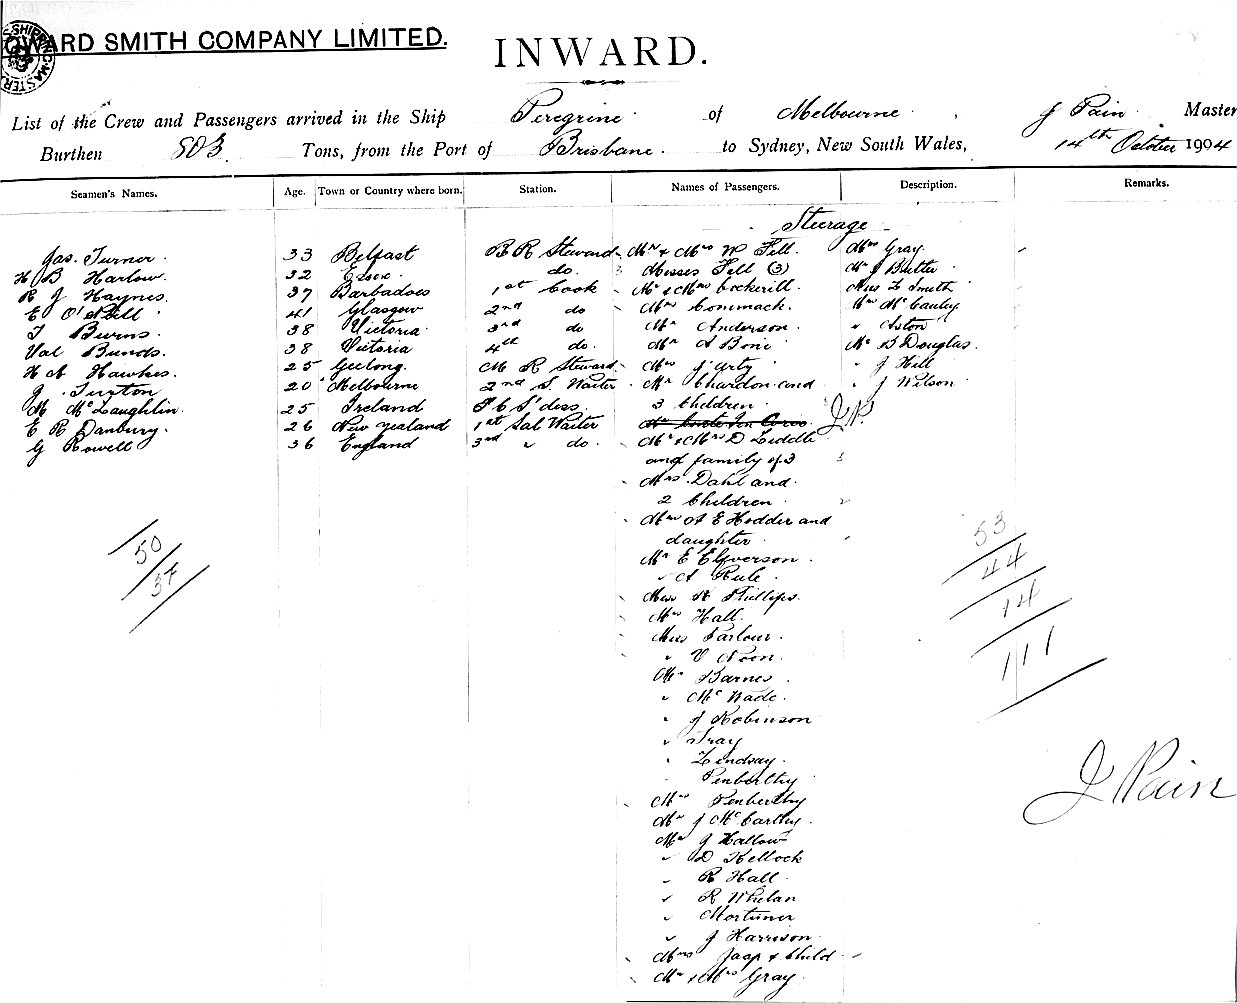 SHIPPING MASTER
OWARD SMITH COMPANY LIMITED.
INWARD.
List of the Crew and Passengers arrived in the Ship Peregrine of Melbourne, J Pain Master
Burthen 803 Tons, from the Port of Brisbane. to Sydney, New South Wales, 14th October 1904
Seamen's Names. Age. Town or Country where born. Station. Names of Passengers. Description. Remarks.
Steerage
Jas. Turner 33 Belfast B R Steward Mr & Mrs W Fell Mrs Gray
H B Harlow 32 Essex do. Misses Fell (3) Mr J Butler
R J Haynes 37 Barbadoes 1st Cook Mr & Mrs Cockerill Miss L Smith
E O'Neill 41 Glasgow 2nd do Mrs Commack. Mrs McCauley
T Burns 38 Victoria 3rd do Mr Anderson. " Aston
Val Bunds. 38 Victoria 4th do. Mr A Bone Mr B Douglas.
H A Hawkes. 25 Geelong. M R Steward Mrs J Arty " J Hill
J. 20 Melbourne 2nd S. Waiter Mr Chardon and " J Wilson
M McLaughlin. 25 Ireland F C S'dess 3 Children
E R Danbury. 26 New Zealand 1st Sal Waiter J.P.
G Rowell 36 England 3rd " do. Mr & Mrs D Liddle
and family of 3 3
Mrs Dahl and
2 Children 2
Mrs A E Hodder and
daughter
Mr E Elfverson
" A Rule
Miss H Phillips.
Mrs Hall.
Miss Parlour.
" V Noon.
Mr Barnes
" McWade.
" J Robinson
" Gray
" Lindsay.
Penberthy
Mrs Penberthy
Mr J McCarthy.
Mr J Hallow
" D Kellock
" R Hall
" R Whelan
" Mortimer
" J Harrison
Mrs Jaap & Child
Mr & Mrs Gray
50
37
53
44
14
111
J Pain